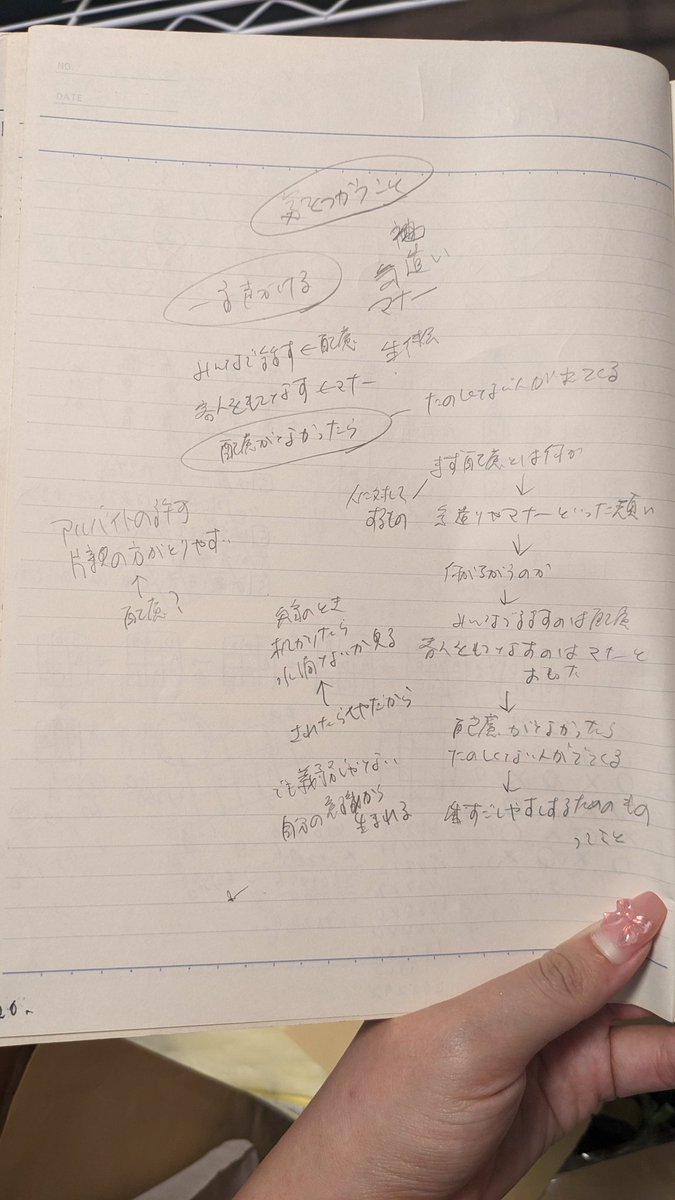 NO.
DATE
気をつかうこと
気遣い
マナー
声かける
みんなで話す←配慮
客人をもてなす←マナー
配慮がなかったら
たのしくない人が出てくる
まず配慮とは何か
↓
人に対して
するもの
気遣りやマナーといった類い
↓
何がちがうのか
↓
みんなで話すのは配慮
客人をもてなすのはマナーと
おもった
↓
配慮がなかったら
たのしくない人がでてくる
↓
すごしやすくするためのもの
ってこと
アルバイトの許可
片親の方がとりやすい
↑
配慮?
食事のとき
机かりたら
水滴ないか見る
↑
されたらいやだから
でも義務じゃない
自分の意識から
生まれる
20.